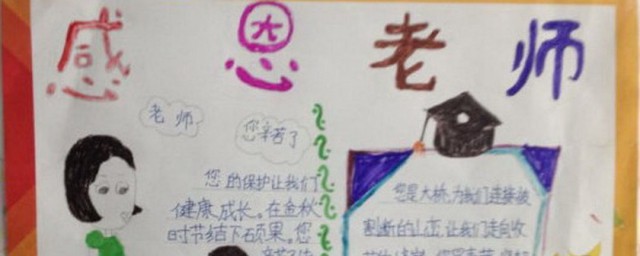 感恩老师
老师
您辛苦了
您的保护让我们
健康成长。在金秋
时节结下硕果。您
您是大桥,为我们连接被
割断的山峦,让我们走向收